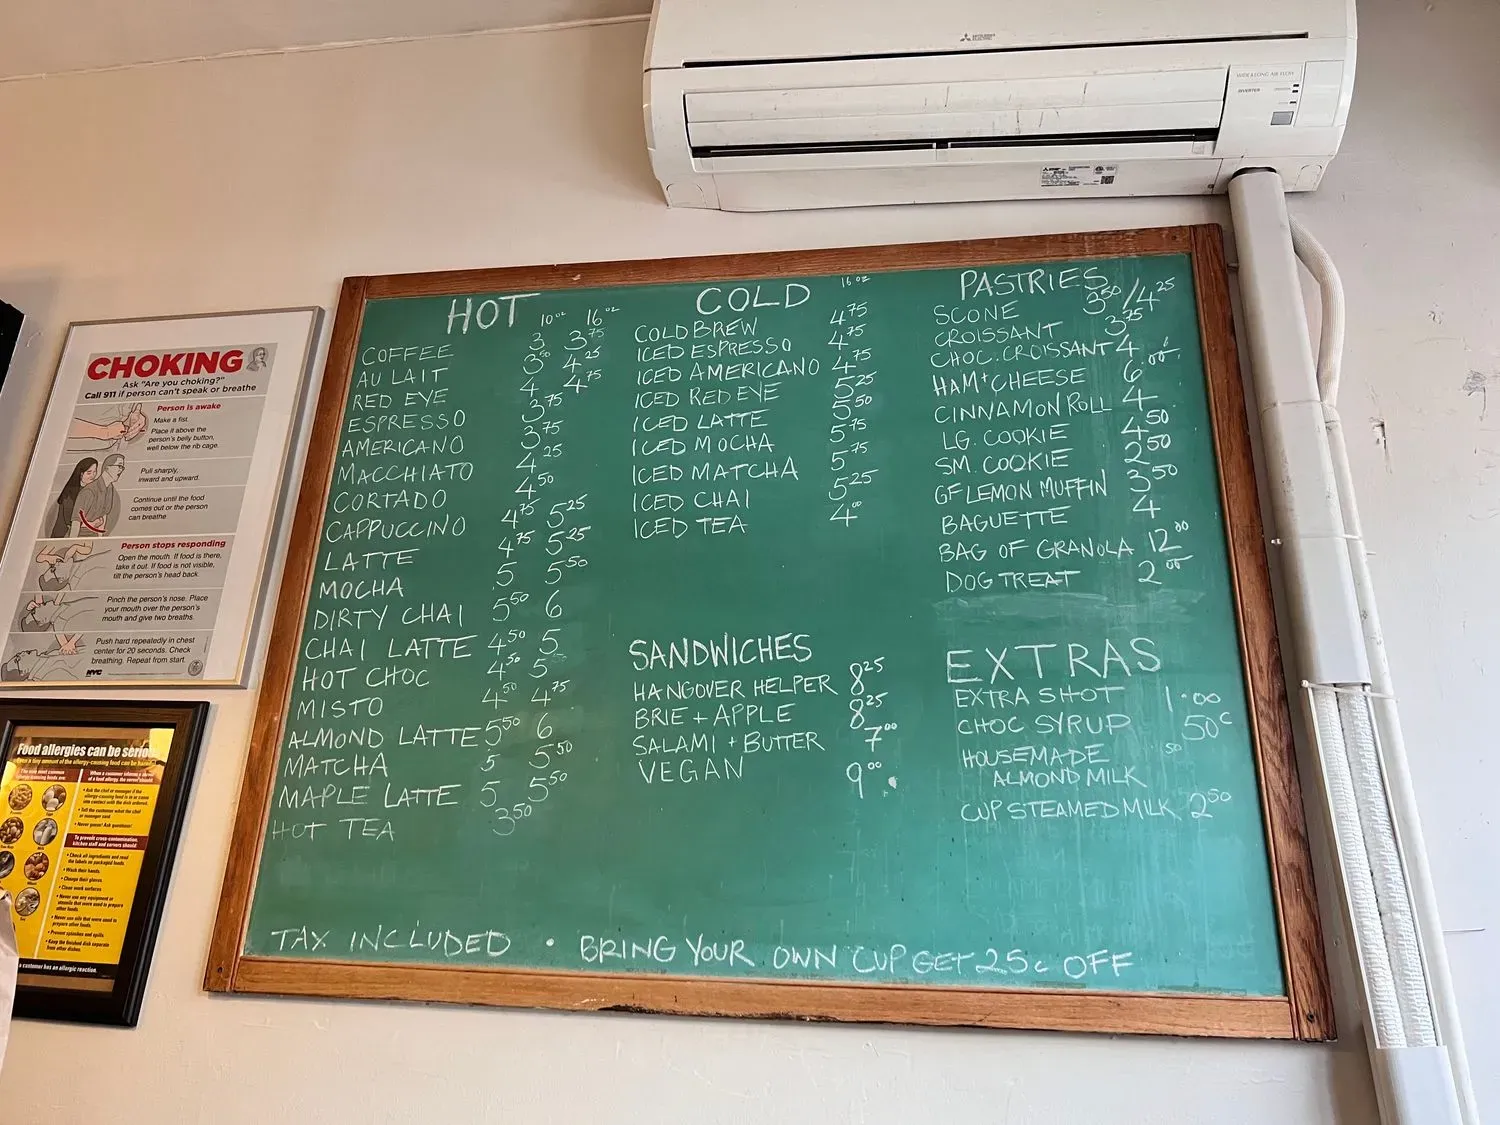 MITSUBISHI ELECTRIC
WIDE & LONG AIR FLOW
INVERTER
CHOKING
Ask "Are you choking?"
Call 911 if person can't speak or breathe
Person is awake
Make a fist.
Place it above the
person's belly button,
well below the rib cage.
Pull sharply,
inward and upward.
Continue until the food
comes out or the person
can breathe.
Person stops responding
Open the mouth. If food is there,
take it out. If food is not visible,
tilt the person's head back.
Pinch the person's nose. Place
your mouth over the person's
mouth and give two breaths.
Push hard repeatedly in chest
center for 20 seconds. Check
breathing. Repeat from start.
NYC
Food allergies can be serious
When a customer informs a server
of a food allergy the server should:
• Ask the chef or manager if the
allergy-causing food is in or came
into contact with the dish ordered.
• Tell the customer what the chef
or manager said
• Never guess! Ask questions!
To prevent cross-contamination,
kitchen staff and servers should:
• Check all ingredients and read
the labels on packaged foods.
• Wash their hands.
• Change their gloves.
• Clean work surfaces
• Never use any equipment or
utensils that were used to prepare
other foods.
• Never use oils that were used to
prepare other foods.
• Prevent splashes and spills.
• Keep the finished dish separate
from other dishes.
a customer has an allergic reaction.
HOT 10oz 16oz
COFFEE 3 3 75
AU LAIT 3 50 4 25
RED EYE 4 4 75
ESPRESSO 3 75
AMERICANO 3 75
MACCHIATO 4 25
CORTADO 4 50
CAPPUCCINO 4 75 5 25
LATTE 4 75 5 25
MOCHA 5 5 50
DIRTY CHAI 5 50 6
CHAI LATTE 4 50 5
HOT CHOC 4 50 5
MISTO 4 50 4 75
ALMOND LATTE 5 50 6
MATCHA 5 5 50
MAPLE LATTE 5 5 50
HOT TEA 3 50
COLD 16oz
COLD BREW 4 75
ICED ESPRESSO 4 75
ICED AMERICANO 4 75
ICED RED EYE 5 25
ICED LATTE 5 50
ICED MOCHA 5 75
ICED MATCHA 5 75
ICED CHAI 5 25
ICED TEA 4 00
SANDWICHES
HANGOVER HELPER 8 25
BRIE + APPLE 8 25
SALAMI + BUTTER 7 00
VEGAN 9 00
PASTRIES
SCONE 3 50 / 4 25
CROISSANT 3 75
CHOC. CROISSANT 4
HAM + CHEESE 6 00
CINNAMON ROLL 4
LG. COOKIE 4 50
SM. COOKIE 2 50
GF LEMON MUFFIN 3 50
BAGUETTE 4
BAG OF GRANOLA 12 00
DOG TREAT 2 00
EXTRAS
EXTRA SHOT 1.00
CHOC SYRUP 50c
HOUSEMADE 50
ALMOND MILK
CUP STEAMED MILK 2 50
TAX INCLUDED • BRING YOUR OWN CUP GET 25c OFF